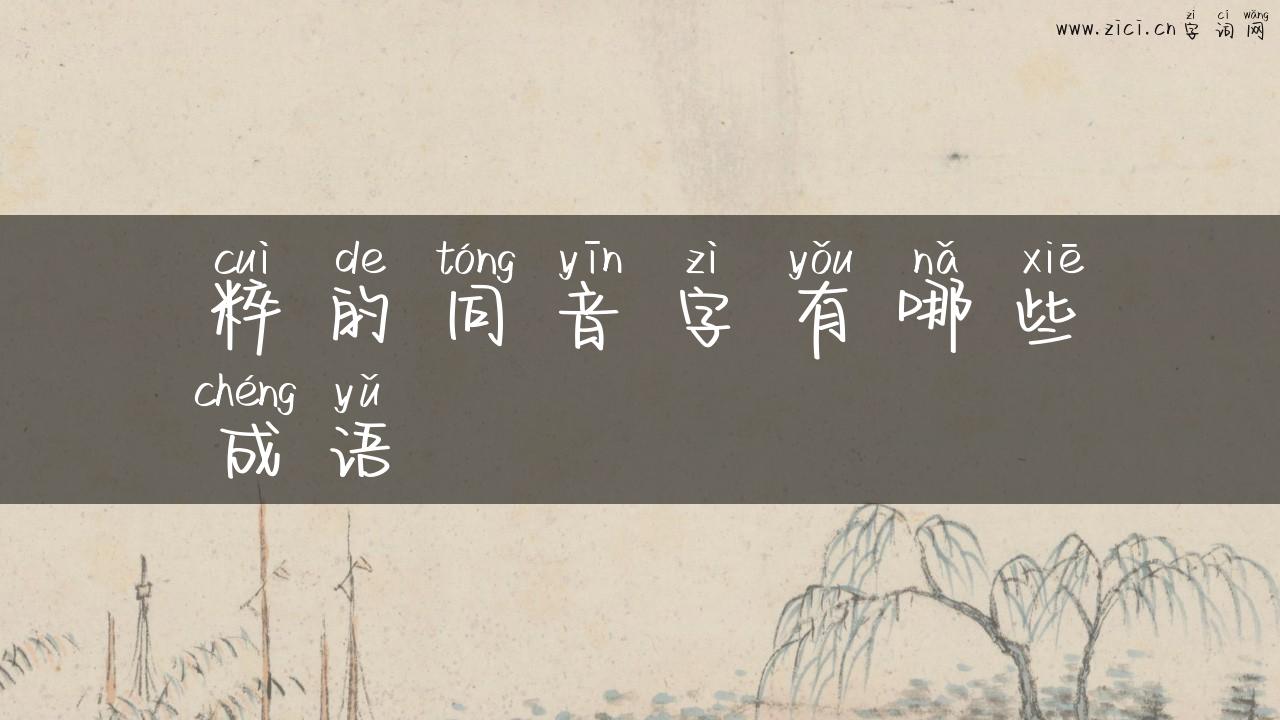 zì cí wǎng
www.zici.cn 字词网
cuì de tóng yīn zì yǒu nǎ xiē
粹的同音字有哪些
chéng yǔ
成语